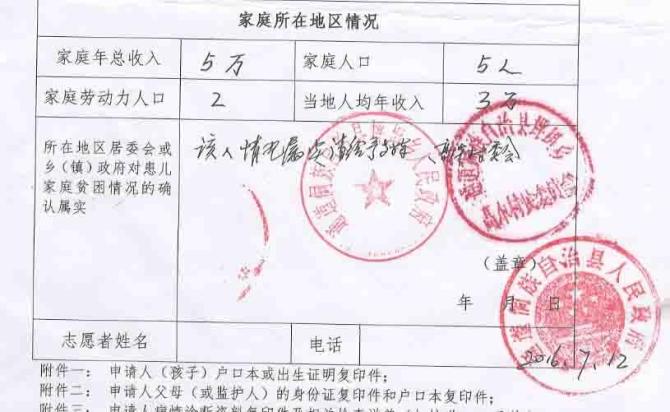 家庭所在地区情况
家庭年总收入 5万 家庭人口 5人
家庭劳动力人口 2 当地人均年收入 3万
所在地区居委会或
乡（镇）政府对患儿
家庭贫困情况的确
认属实
该人情况属实请给予
（盖章）
年 月 日
2016.7.12
志愿者姓名 电话
附件一： 申请人（孩子）户口本或出生证明复印件；
附件二： 申请人父母（或监护人）的身份证复印件和户口本复印件；
附件三： 申请人病情诊断资料复印件及相关检查
通道侗族自治县人民政府